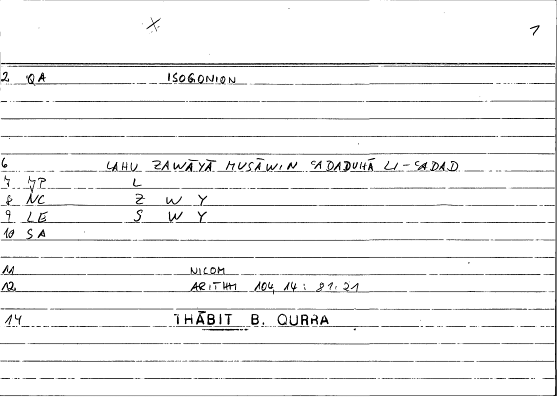 X 1
2 QA ISOGONION
6 LAHU ZAWĀYĀ MUSĀWIN ʿADADUHĀ LI-ʿADAD
7 7P L
8 NC Z W Y
9 LE S W Y
10 SA
11 NICOM
12 ARITHM 104,14 : 81.21
14 THĀBIT B. QURRA